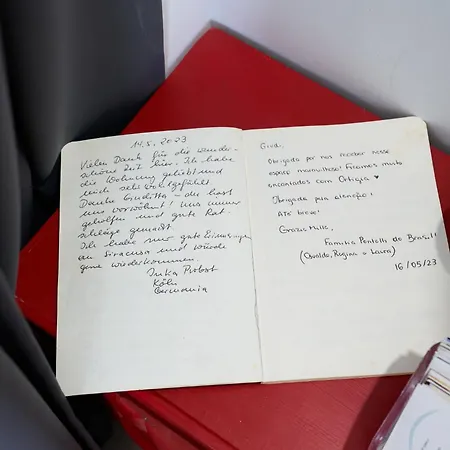 14.5.2023
Vielen Dank für die wunder-
schöne Zeit hier. Ich habe
die Wohnung geliebt und
mich sehr wohlgefühlt.
Danke Giuditta - du hast
uns verwöhnt! uns immer
geholfen und gute Rat-
schläge gemacht.
Ich habe nur gute Erinnerungen
an Siracusa und würde
gerne wiederkommen.
Inka Probst
Köln
Germania
Giud,
Obrigada por nos receber nesse
espaço maravilhoso! Ficamos muito
encantados com Ortigia ♥
Obrigada pela atenção!
Até breve!
Grazie Mille,
Família do Brasil!
(Osvaldo, Regina e Laura)
16/05/23